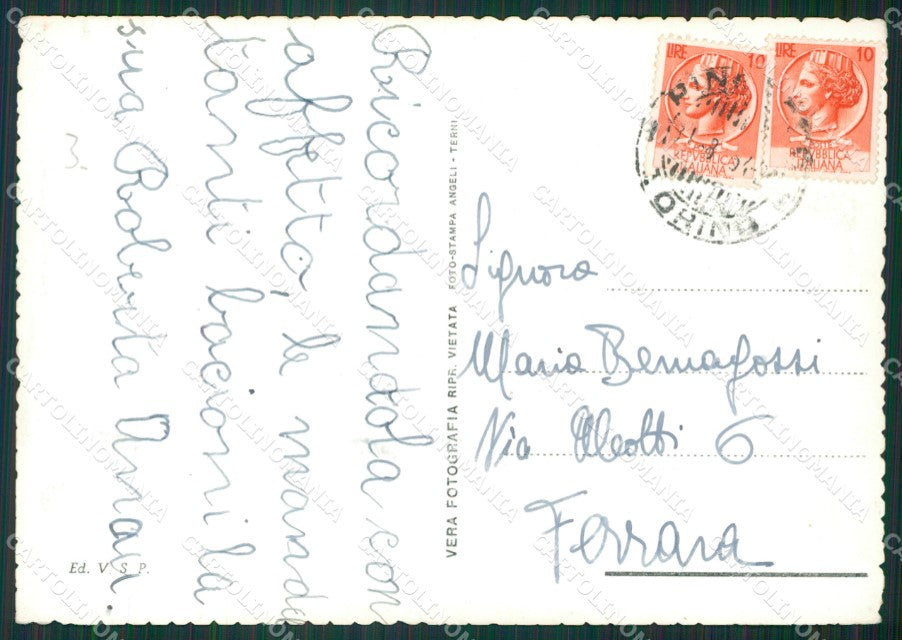 Ricordandola con
affetto, le manda
tanti bacioni la
sua Roberta
Ed. V. S. P.
VERA FOTOGRAFIA RIPR. VIETATA FOTO-STAMPA ANGELI - TERNI
LIRE 10
REPVBBLICA
ITALIANA
LIRE 10
REPVBBLICA
ITALIANA
Signora
Maria Bernagossi
Via Aleotti 6
Ferrara
CARTOLINOMANIA